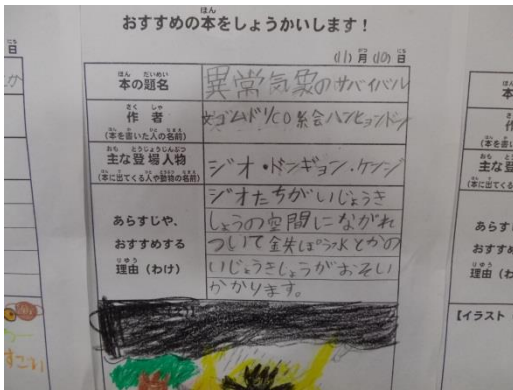 おすすめの本をしょうかいします！
(11)月(10)日
本の題名
異常気象のサバイバル
作者
(本を書いた人の名前)
文ゴムドリCO 絵会ハンヒョンドン
主な登場人物
(本に出てくる人や動物の名前)
ジオ・ドンギョン・ケンジ
あらすじや、
おすすめする
理由（わけ）
ジオたちがいじょうき
しょうの空間にながれ
ついて
とかの
いじょうきしょうがおそい
かかります。
【イラスト
すごい